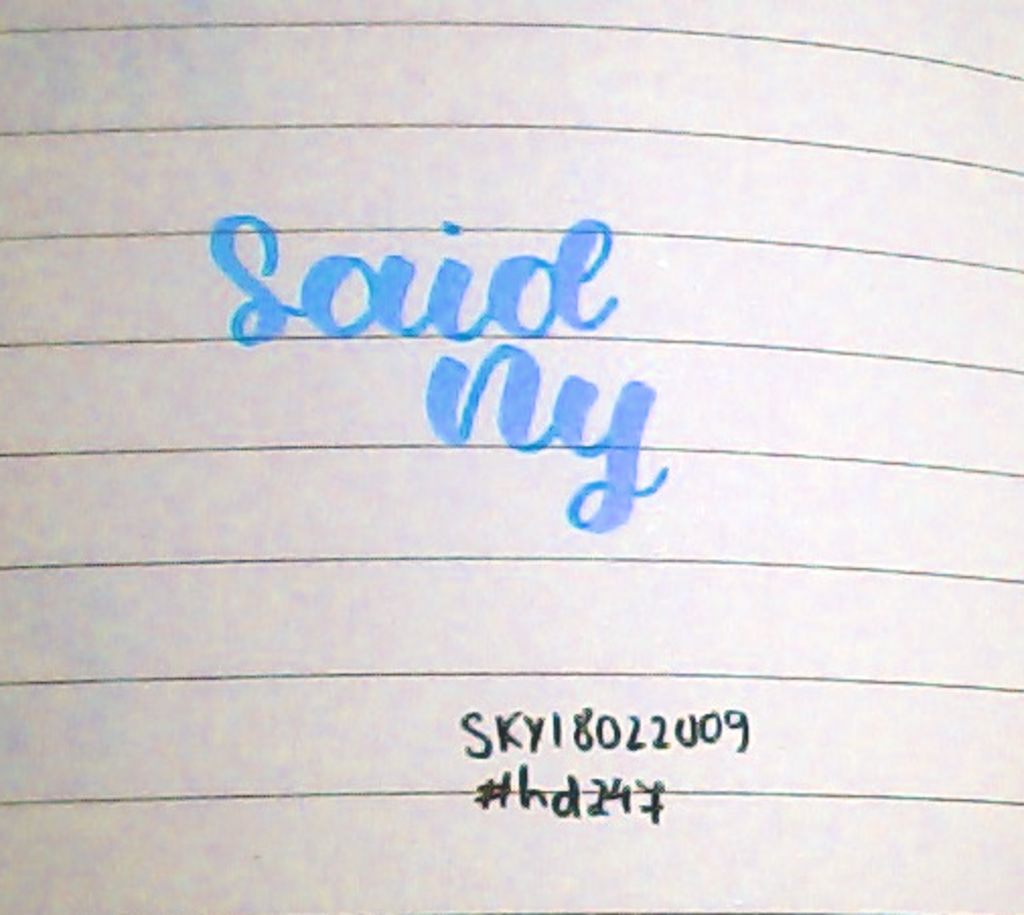 Said
ny
SKY18022009
#hd247